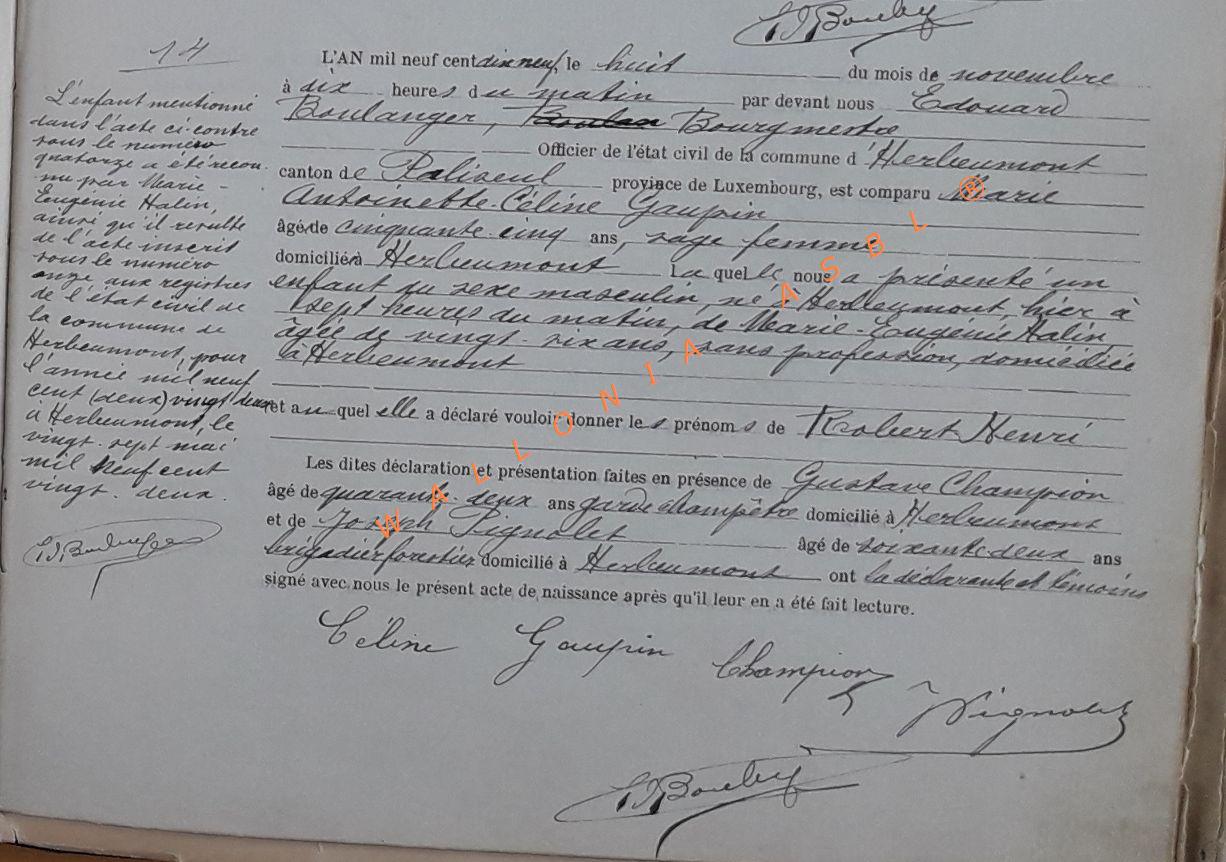 14
L'enfant mentionné
dans l'acte ci-contre
sous le numéro
quatorze a été recon-
nu par Marie-
Eugénie Halin,
ainsi qu'il résulte
de l'acte inscrit
sous le numéro
onze aux registres
de l'état civil de
la commune de
Herbeumont, pour
l'année mil neuf
cent (deux) vingt deux
à Herbeumont, le
vingt-sept mai
mil neuf cent
vingt-deux.
L'AN mil neuf cent dix neuf, le huit du mois de novembre
à dix heures du matin par devant nous Edouard
Boulanger, Bourgmestre
Officier de l'état civil de la commune d'Herbeumont
canton de Paliseul province de Luxembourg, est comparu Marie
Antoinette-Céline Gaupin
âgé de cinquante-cinq ans, sage femme
domicilié à Herbeumont Laquelle nous a présenté un
enfant du sexe masculin, né à Herbeumont, hier à
sept heures du matin, de Marie-Eugénie Halin,
âgée de vingt-six ans, sans profession, domiciliée
à Herbeumont
et auquel elle a déclaré vouloir donner les prénoms de Robert Henri
Les dites déclaration et présentation faites en présence de Gustave Champion
âgé de quarante-deux ans garde champêtre domicilié à Herbeumont
et de Joseph Pignolet âgé de soixante-deux ans
brigadier forestier domicilié à Herbeumont ont la déclarante et témoins
signé avec nous le présent acte de naissance après qu'il leur en a été fait lecture.
Céline Gaupin Champion
Pignolet
WALLONIA ASBL ®